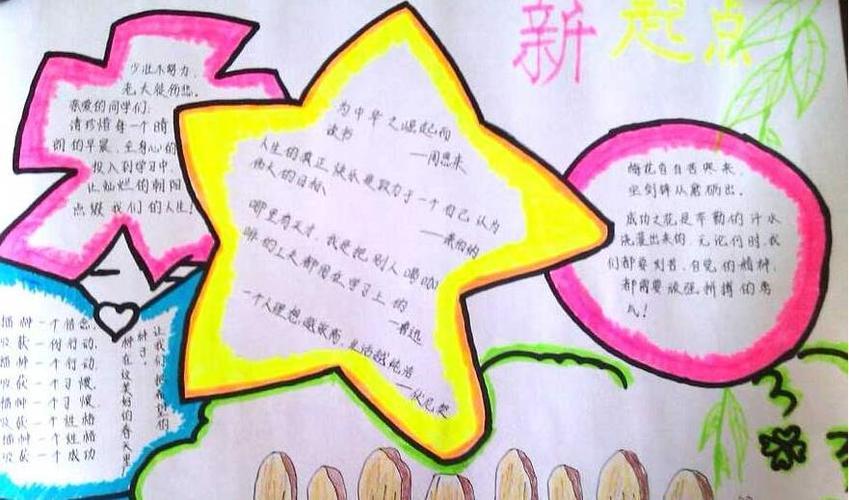 新起点
少壮不努力,
老大徒伤悲。
亲爱的同学们:
请珍惜每一个晴
朗的早晨,全身心的
投入到学习中,
让灿烂的朝阳
点缀我们的人生!
为中华之崛起而
读书
——周恩来
人生的真正快乐是致力于一个自己认为
伟大的目标
——萧伯纳
哪里有天才,我是把别人喝咖
啡的工夫都用在学习上的
——鲁迅
一个人理想越崇高,生活越纯洁
——伏尼契
梅花香自苦寒来,
宝剑锋从磨砺出。
成功之花是辛勤的汗水
浇灌出来的,无论何时,我
们都要刻苦、自觉的精神,
都需要顽强拼搏的勇
气!
让我们把希望的
种子,
种在这美好的春天里
播种一个信念,
收获一份行动,
播种一个行动
收获一个习惯,
播种一个习惯,
收获一个性格
播种一个性格
收获一个成功